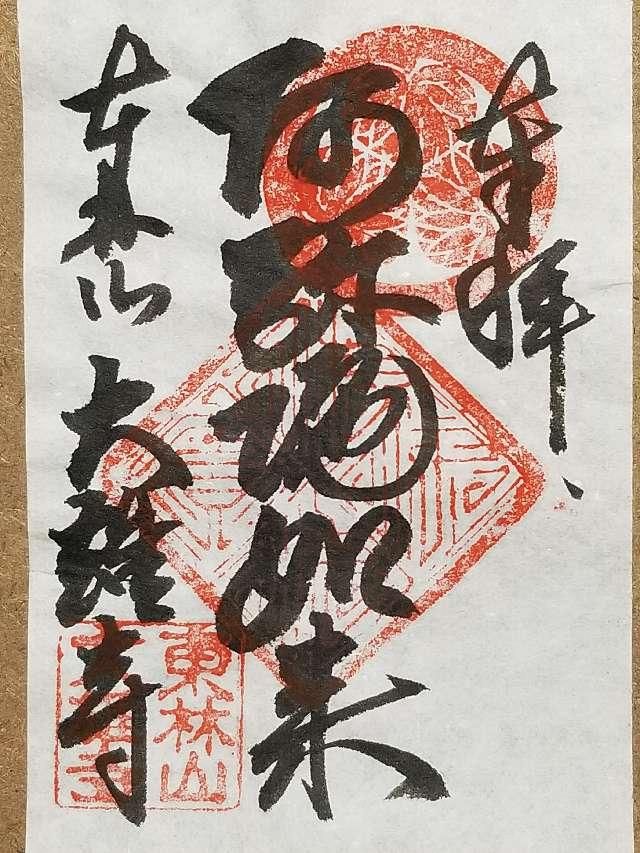 奉拝
阿弥陀如来
東林山 大 寺
東林山